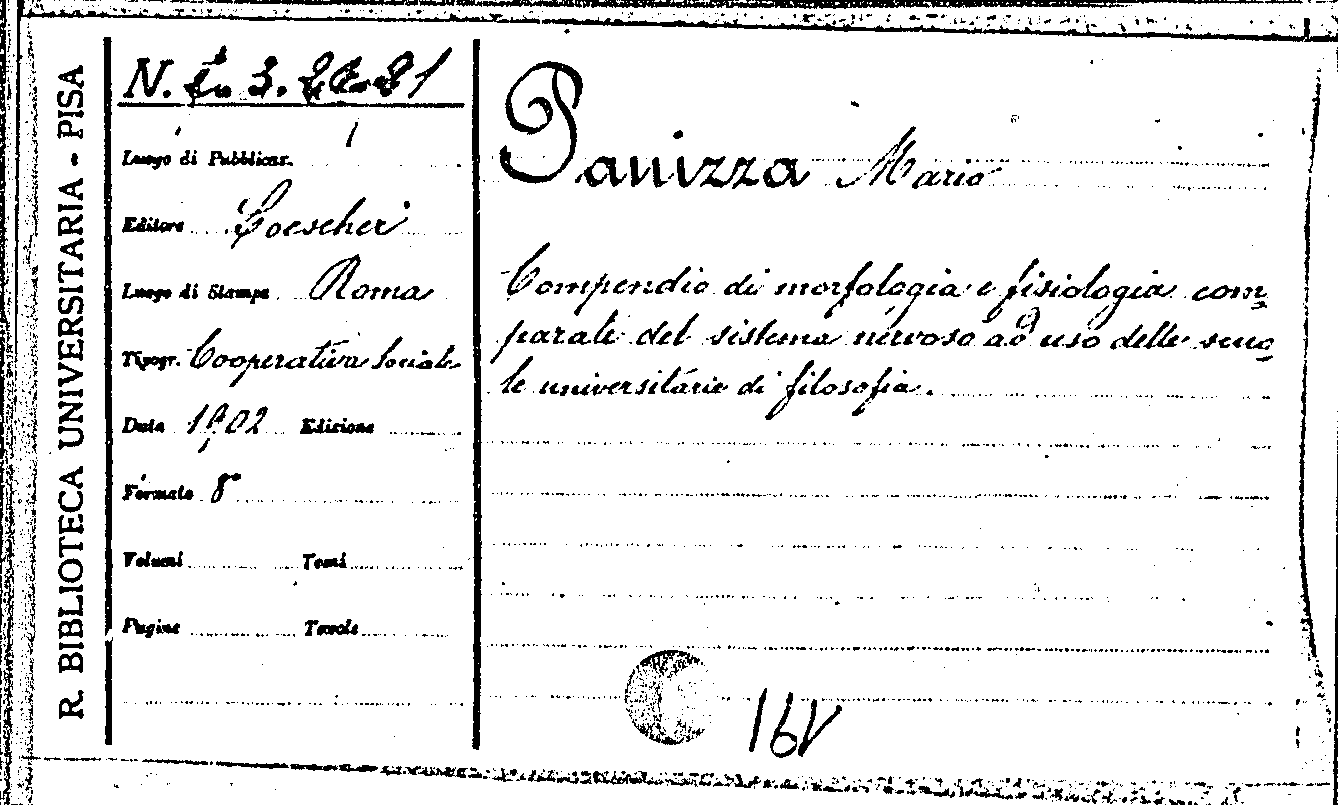 R. BIBLIOTECA UNIVERSITARIA - PISA
N.
Luogo di Pubblicaz.
Editore Loescher
Luogo di Stampa Roma
Tipogr. Cooperativa Sociale
Data 1902 Edizione
Formato 8°
Volumi Tomi
Pagine Tavole
Panizza Mario
Compendio di morfologia e fisiologia com=
parate del sistema nervoso ad uso delle scuo=
le universitarie di filosofia.